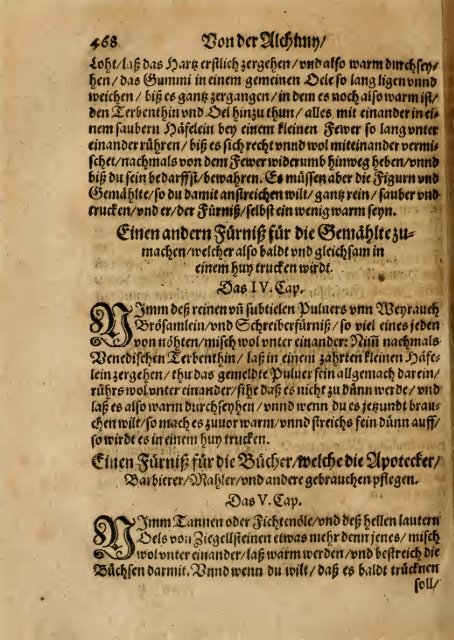 468 Von der Alchimy/
Loht/laß das Hartz erstlich zergehen/vnd also warm durchsey-
hen/das Gummi in einem gemeinen Oele so lang ligen vnnd
weichen/biß es gantz zergangen/in dem es noch also warm ist/
den Terbenthin vnd Oel hinzu thun/alles mit einander in ei-
nem saubern Häfelein bey einem kleinen Fewer so lang vnter
einander rühren/biß es sich recht vnnd wol miteinander vermi-
schet/nachmals von dem Fewer widerumb hinweg heben/vnnd
biß du sein bedarffst/bewahren. Es müssen aber die Figurn vnd
Gemählte/so du damit anstreichen wilt/gantz rein/sauber vnd
trucken/vnd er/der Fürniß/selbst ein wenig warm seyn.
Einen andern Fürniß für die Gemählte zu-
machen/welcher also baldt vnd gleichsam in
einem huy trucken wirdt.
Das IV. Cap.
NImm deß reinen vñ subtielen Puluers vnn Weyrauch
Brösamlein/vnd Schreiberfürniß/so viel eines jeden
von nöhten/misch wol vnter einander: Nim nachmals
Venedischen Terbenthin/laß in einem zahrten kleinen Häfe-
lein zergehen/thu das gemeldte Puluer fein allgemach darein/
rührs wol vnter einander/sihe daß es nicht zu dünn werde/vnd
laß es also warm durchseyhen/vnnd wenn du es jetzundt brau-
chen wilt/so mach es zuuor warm/vnnd streichs fein dünn auff/
so wirdt es in einem huy trucken.
Einen Fürniß für die Bücher/welche die Apotecker/
Barbierer/Mahler/vnd andere gebrauchen pflegen.
Das V. Cap.
NImm Tannen oder Fichtenöle/vnd deß hellen lautern
Oels von Ziegelsteinen etwas mehr denn jenes/misch
wol vnter einander/laß warm werden/vnd bestreich die
Büchsen darmit. Vnnd wenn du wilt/daß es baldt trücknen
soll/